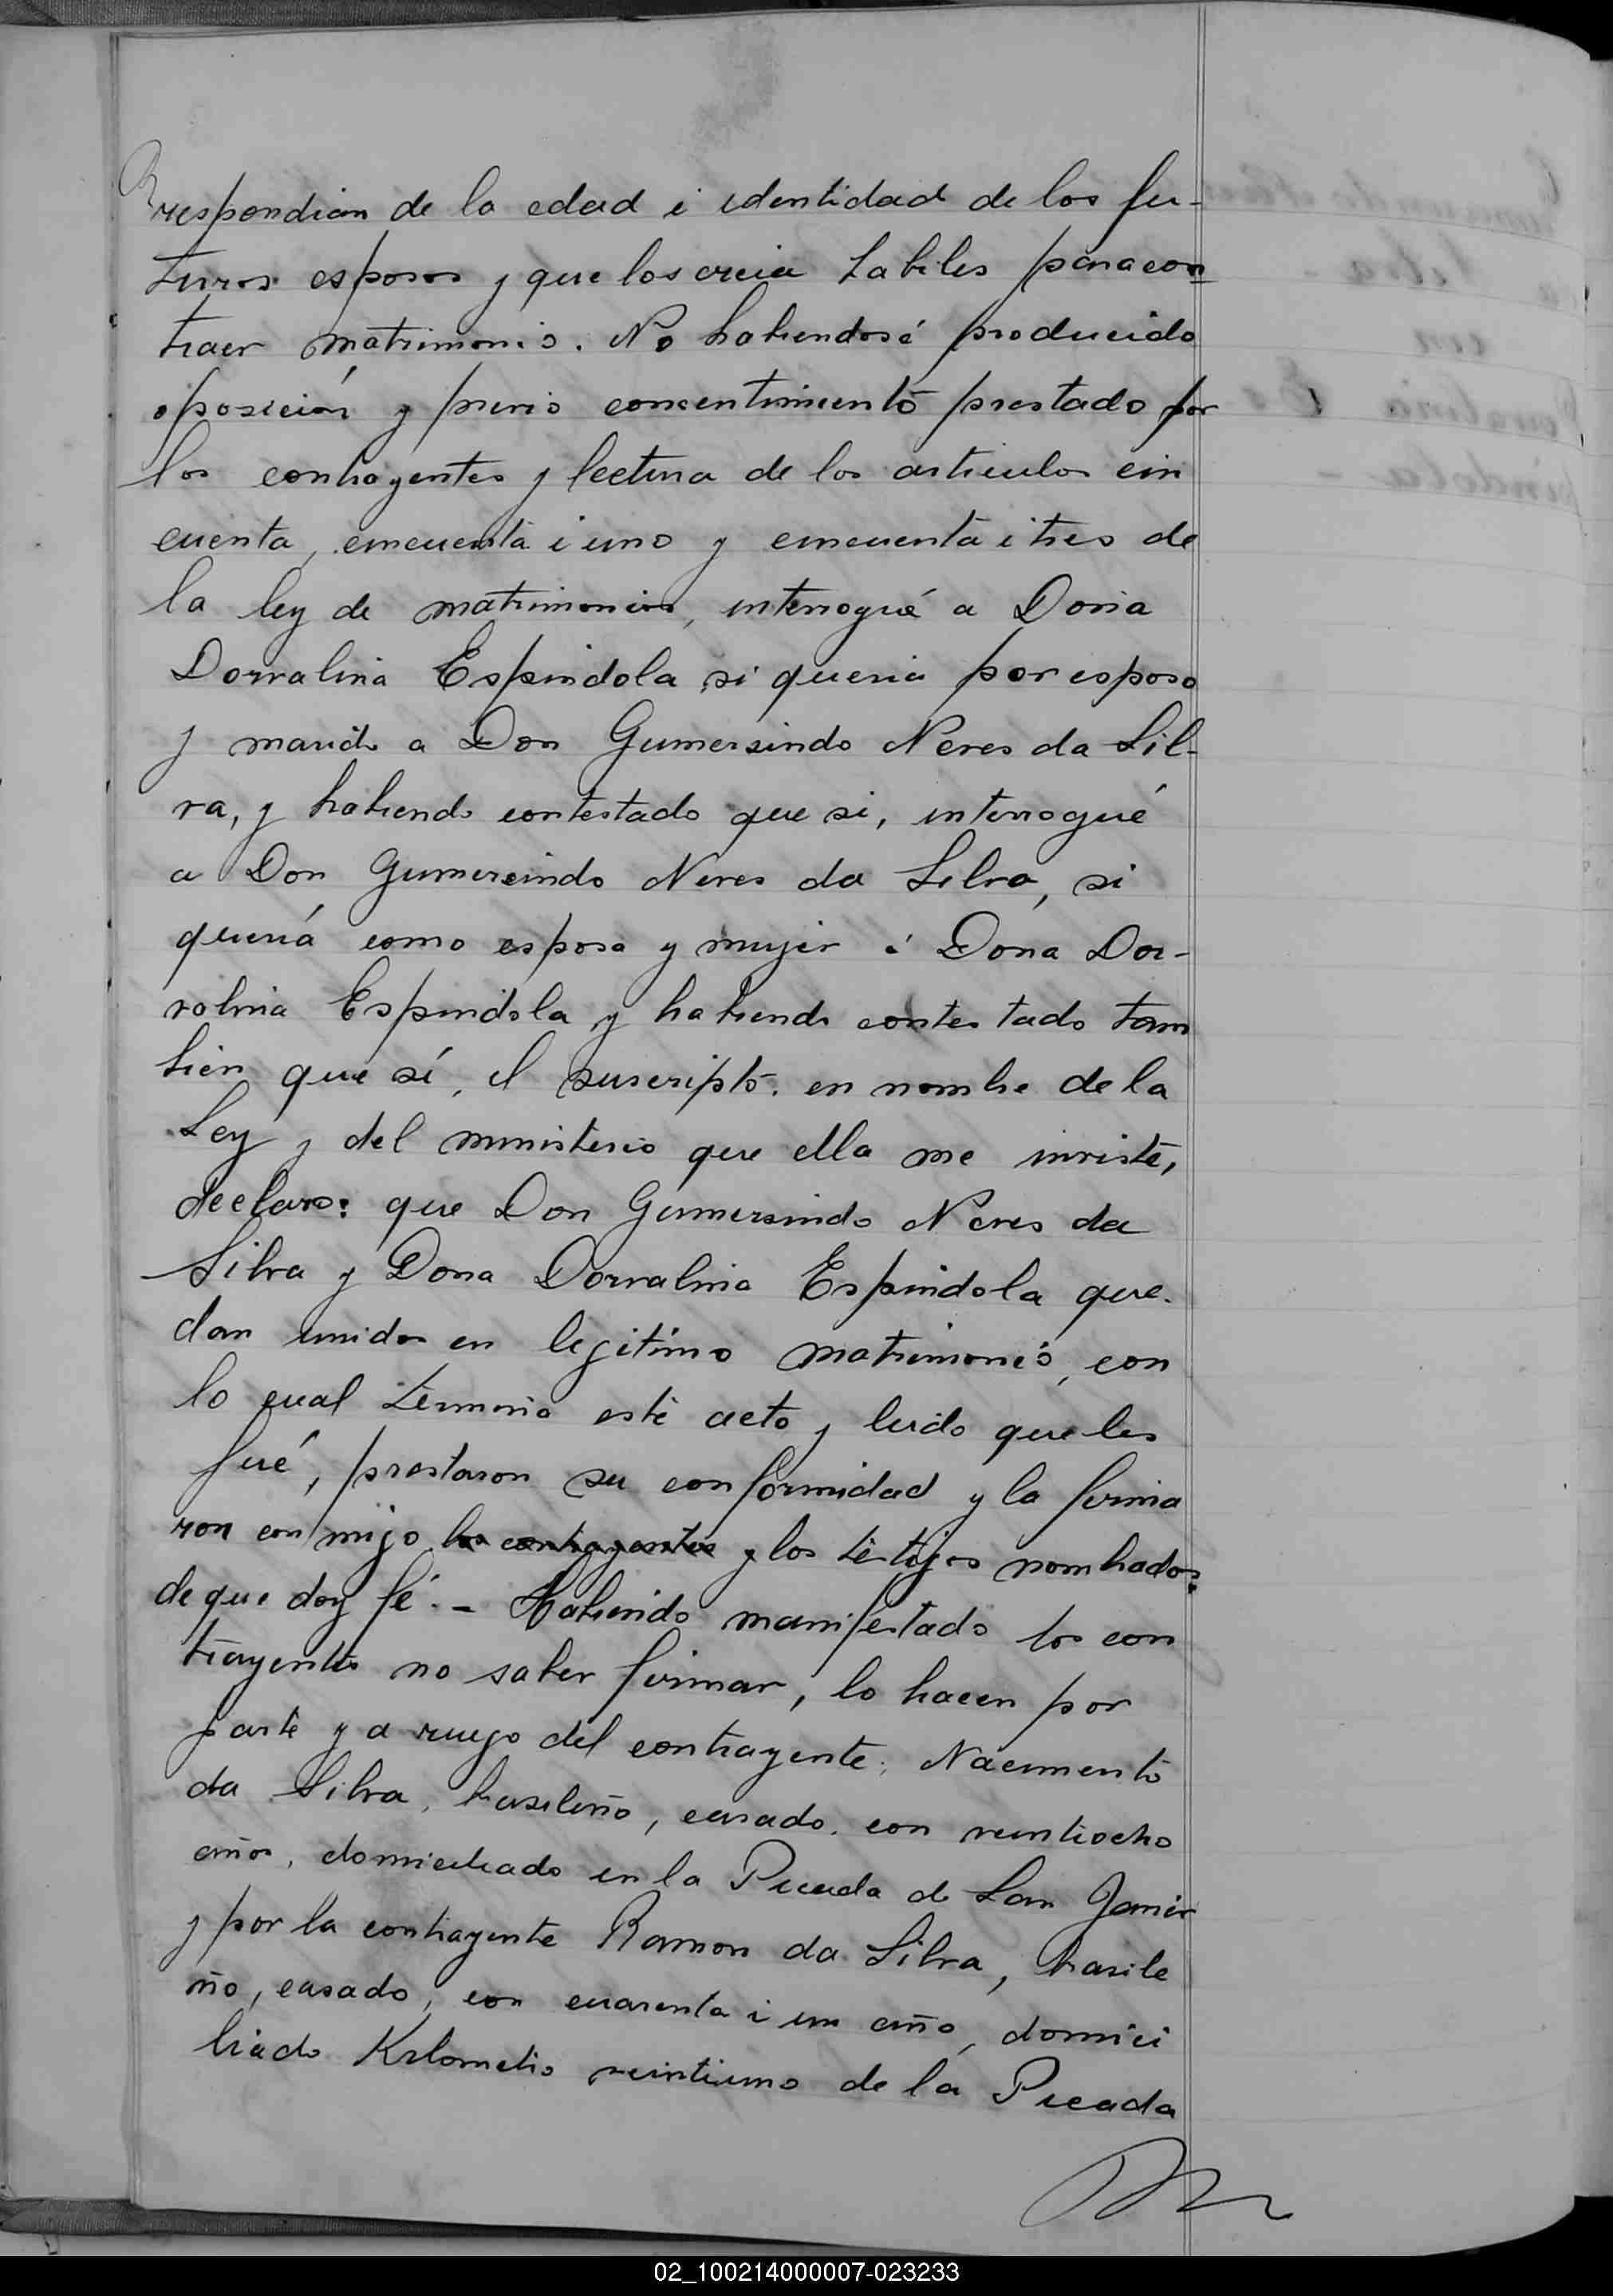 respondian de la edad i identidad de los fu-
turos esposos y que los creia habiles para con-
traer matrimonio. No habiendosé producido
oposición y previo consentimiento prestado por
los contrayentes y lectura de los articulos cin
cuenta, cincuenta i uno y cincuenta i tres de
la ley de matrimonios, interrogué a Doña
Dorvalina Espindola si queria por esposo
y marido a Don Gumersindo Neres da Sil-
va, y habiendo contestado que si, interrogué
a Don Gumercindo Neres da Silva, si
queriá como esposa y mujer á Doña Dor-
valina Espindola y habiendo contestado tam
bien que sí, el suscripto. en nombre de la
Ley y del ministerio que ella me inviste,
declaro: que Don Gumersindo Neres da
Silva y Dona Dorvalina Espindola que-
dan unidos en legitimo matrimonio, con
lo cual terminó este acto y leido que les
fué, prestaron su conformidad y la firma
ron con migo los contrayentes y los testigos nombrados,
de que doy fé. - Habiendo manifestado los con
trayentes no saber firmar, lo hacen por
parte y a ruego del contrayente; Nacimento
da Silva, brasileño, casado, con veintiocho
años, domiciliado en la Picada de San Javier
y por la contrayente Ramon da Silva, brasile
ño, casado, con cuarenta i un año, domici
liado Kilometro veintiuno de la Picada
Gumersindo
da Silva -
con
Dorvalina Es
pindola -
02_100214000007-023233